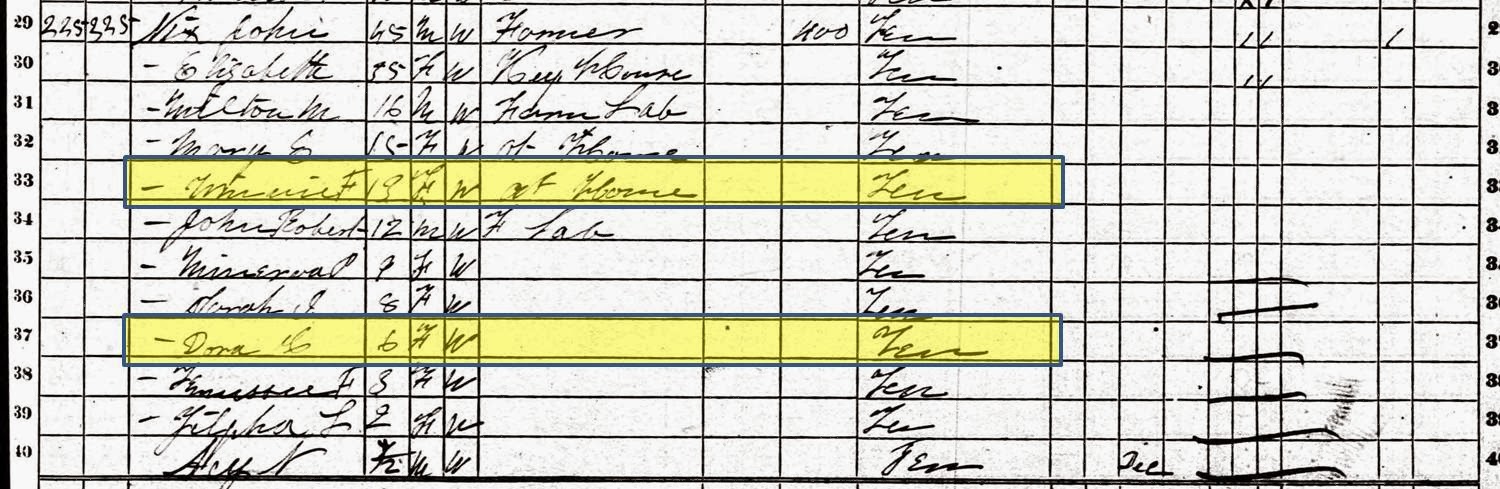 29 225 225 Nix John 45 M W Farmer 400 Ten 11 1
30 - Elizabeth 35 F W Keep House Ten 11
31 - Milton M 16 M W Farm Lab Ten
32 - Mary E 15 F W at Home Ten
33 - F 13 F W at Home Ten
34 - John Robert 12 M W F Lab Ten
35 - Minerva P 9 F W Ten
36 - Sarah J 8 F W Ten
37 - Dora C 6 F W Ten
38 - F 3 F W Ten
39 - Zilpha L 2 F W Ten
40 N M W Ten Dec